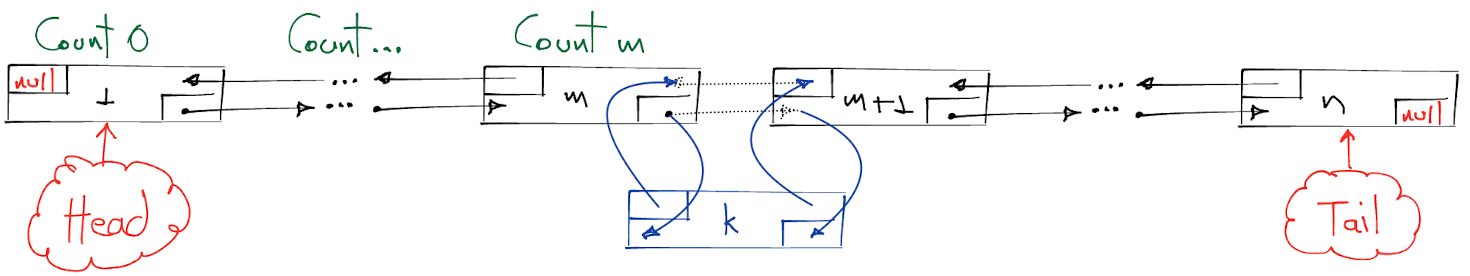 Count 0 Count... Count m
null 1 ... m m+1 ... n
... ... null
k
Head Tail